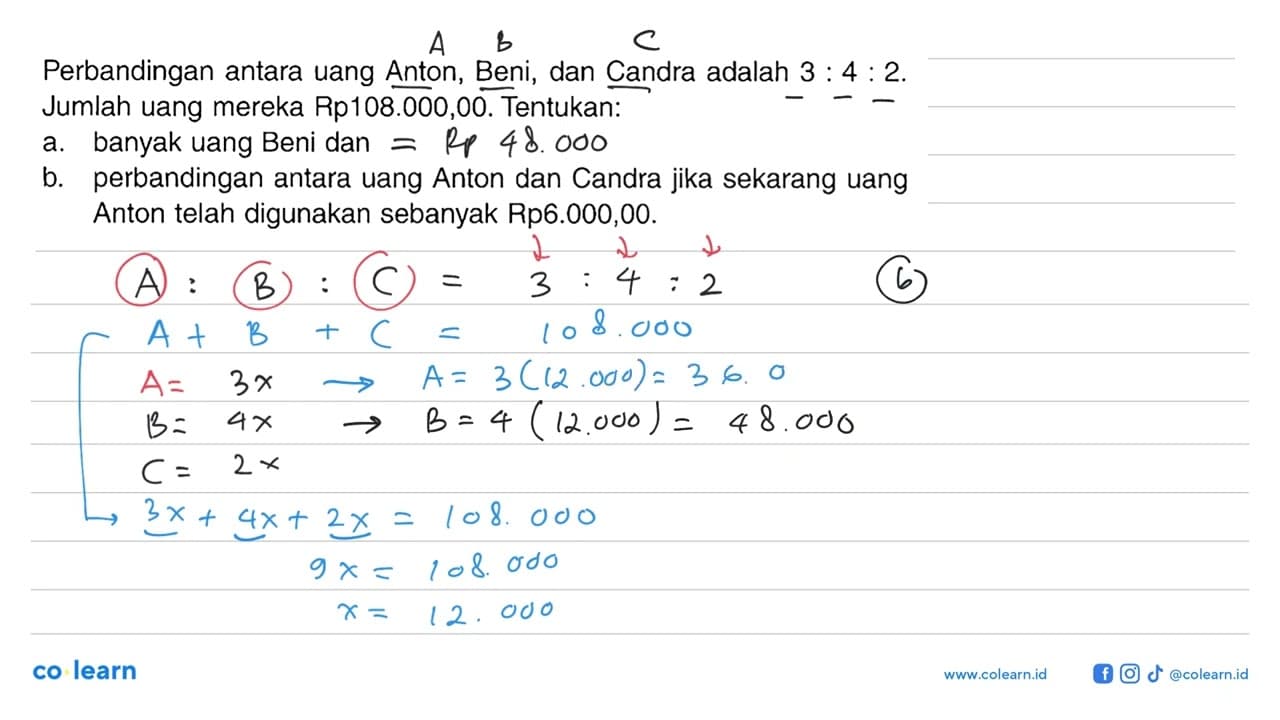 A B C
Perbandingan antara uang Anton, Beni, dan Candra adalah 3 : 4 : 2.
Jumlah uang mereka Rp108.000,00. Tentukan:
a. banyak uang Beni dan = Rp 48.000
b. perbandingan antara uang Anton dan Candra jika sekarang uang
Anton telah digunakan sebanyak Rp6.000,00.
A : B : C = 3 : 4 : 2 6
A + B + C = 108.000
A = 3x → A = 3(12.000) = 36.0
B = 4x → B = 4 (12.000) = 48.000
C = 2x
3x + 4x + 2x = 108.000
9x = 108.000
x = 12.000
co learn
www.colearn.id @colearn.id